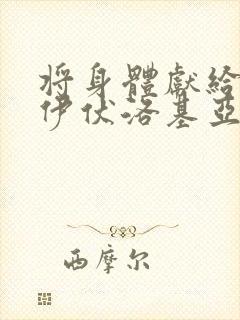 将身體獻給
伊伏洛基亞
西摩尔